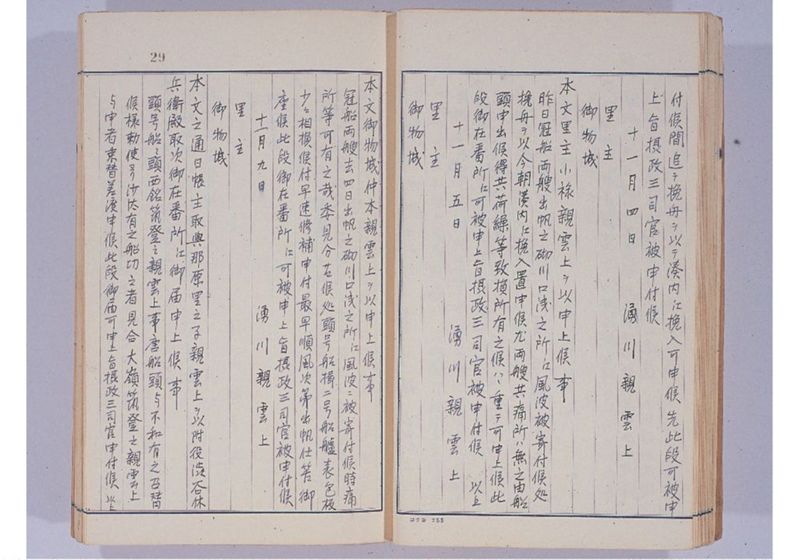 付候間追々挽舟ヲ以テ湊内に挽入可申候先此段可被申
上旨摂政三司官被申付候
十一月四日 湧川親雲上
里主
御物城
本文里主小禄親雲上ヲ以申上候事
昨日冠船両艘出帆之砌川口浅之所に風波被寄付候処
挽舟ヲ以今朝湊内に挽入置申候尤両艘共痛所ハ無之由船
頭申出候得共荷繰等致損所有之候ハヽ重テ可申上候此
段御在番所に可被申上旨摂政三司官被申付候 以上
十一月五日 湧川親雲上
里主
御物城
29
本文御物城仲本親雲上ヲ以申上候事
冠船両艘去四日出帆之砌川口浅之所に風波ニ被寄付候時痛
所等可有之哉委見分在候処頭号船檣二号船艫表包板
少々相損候付早速修補申付最早順風次第出帆仕筈御
座候此段御在番所に可被申上旨摂政三司官被申付候
十一月九日 湧川親雲上
里主
御物城
本文之通日帳主取與那原里之子親雲上ヲ以附役渋谷休
兵衛殿取次御在番所に御届申上候事
頭号船々頭西銘筑登之親雲上事唐船頭与不和有之召替
候様勅使ヨリ沙汰有之船切之者見合大嶺筑登之親雲上
与申者東替差渡申候此段御届可申上旨摂政三司官申付候以上